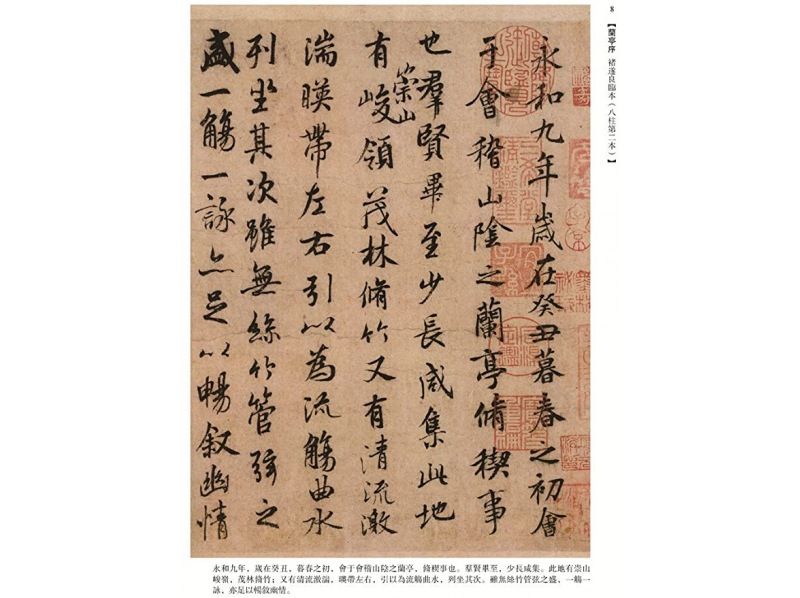 8
【蘭亭序 褚遂良臨本（八柱第二本）】
永和九年歲在癸丑暮春之初會
于會稽山陰之蘭亭脩稧事
也羣賢畢至少長咸集此地
有崇山峻領茂林脩竹又有清流激
湍暎帶左右引以為流觴曲水
列坐其次雖無絲竹管弦之
盛一觴一詠亦足以暢叙幽情
永和九年，歲在癸丑，暮春之初，會于會稽山陰之蘭亭，脩稧事也。羣賢畢至，少長咸集。此地有崇山
峻嶺，茂林脩竹；又有清流激湍，暎帶左右，引以為流觴曲水，列坐其次。雖無絲竹管弦之盛，一觴一
詠，亦足以暢敘幽情。